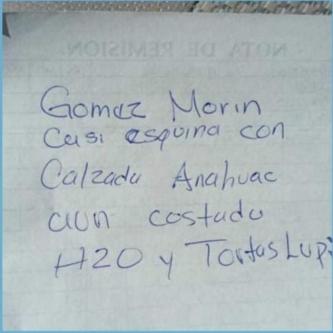 NOTA DE REMISION
Gomez Morin
Casi esquina con
Calzada Anahuac
aun costado
H2O y Tortas Lupi